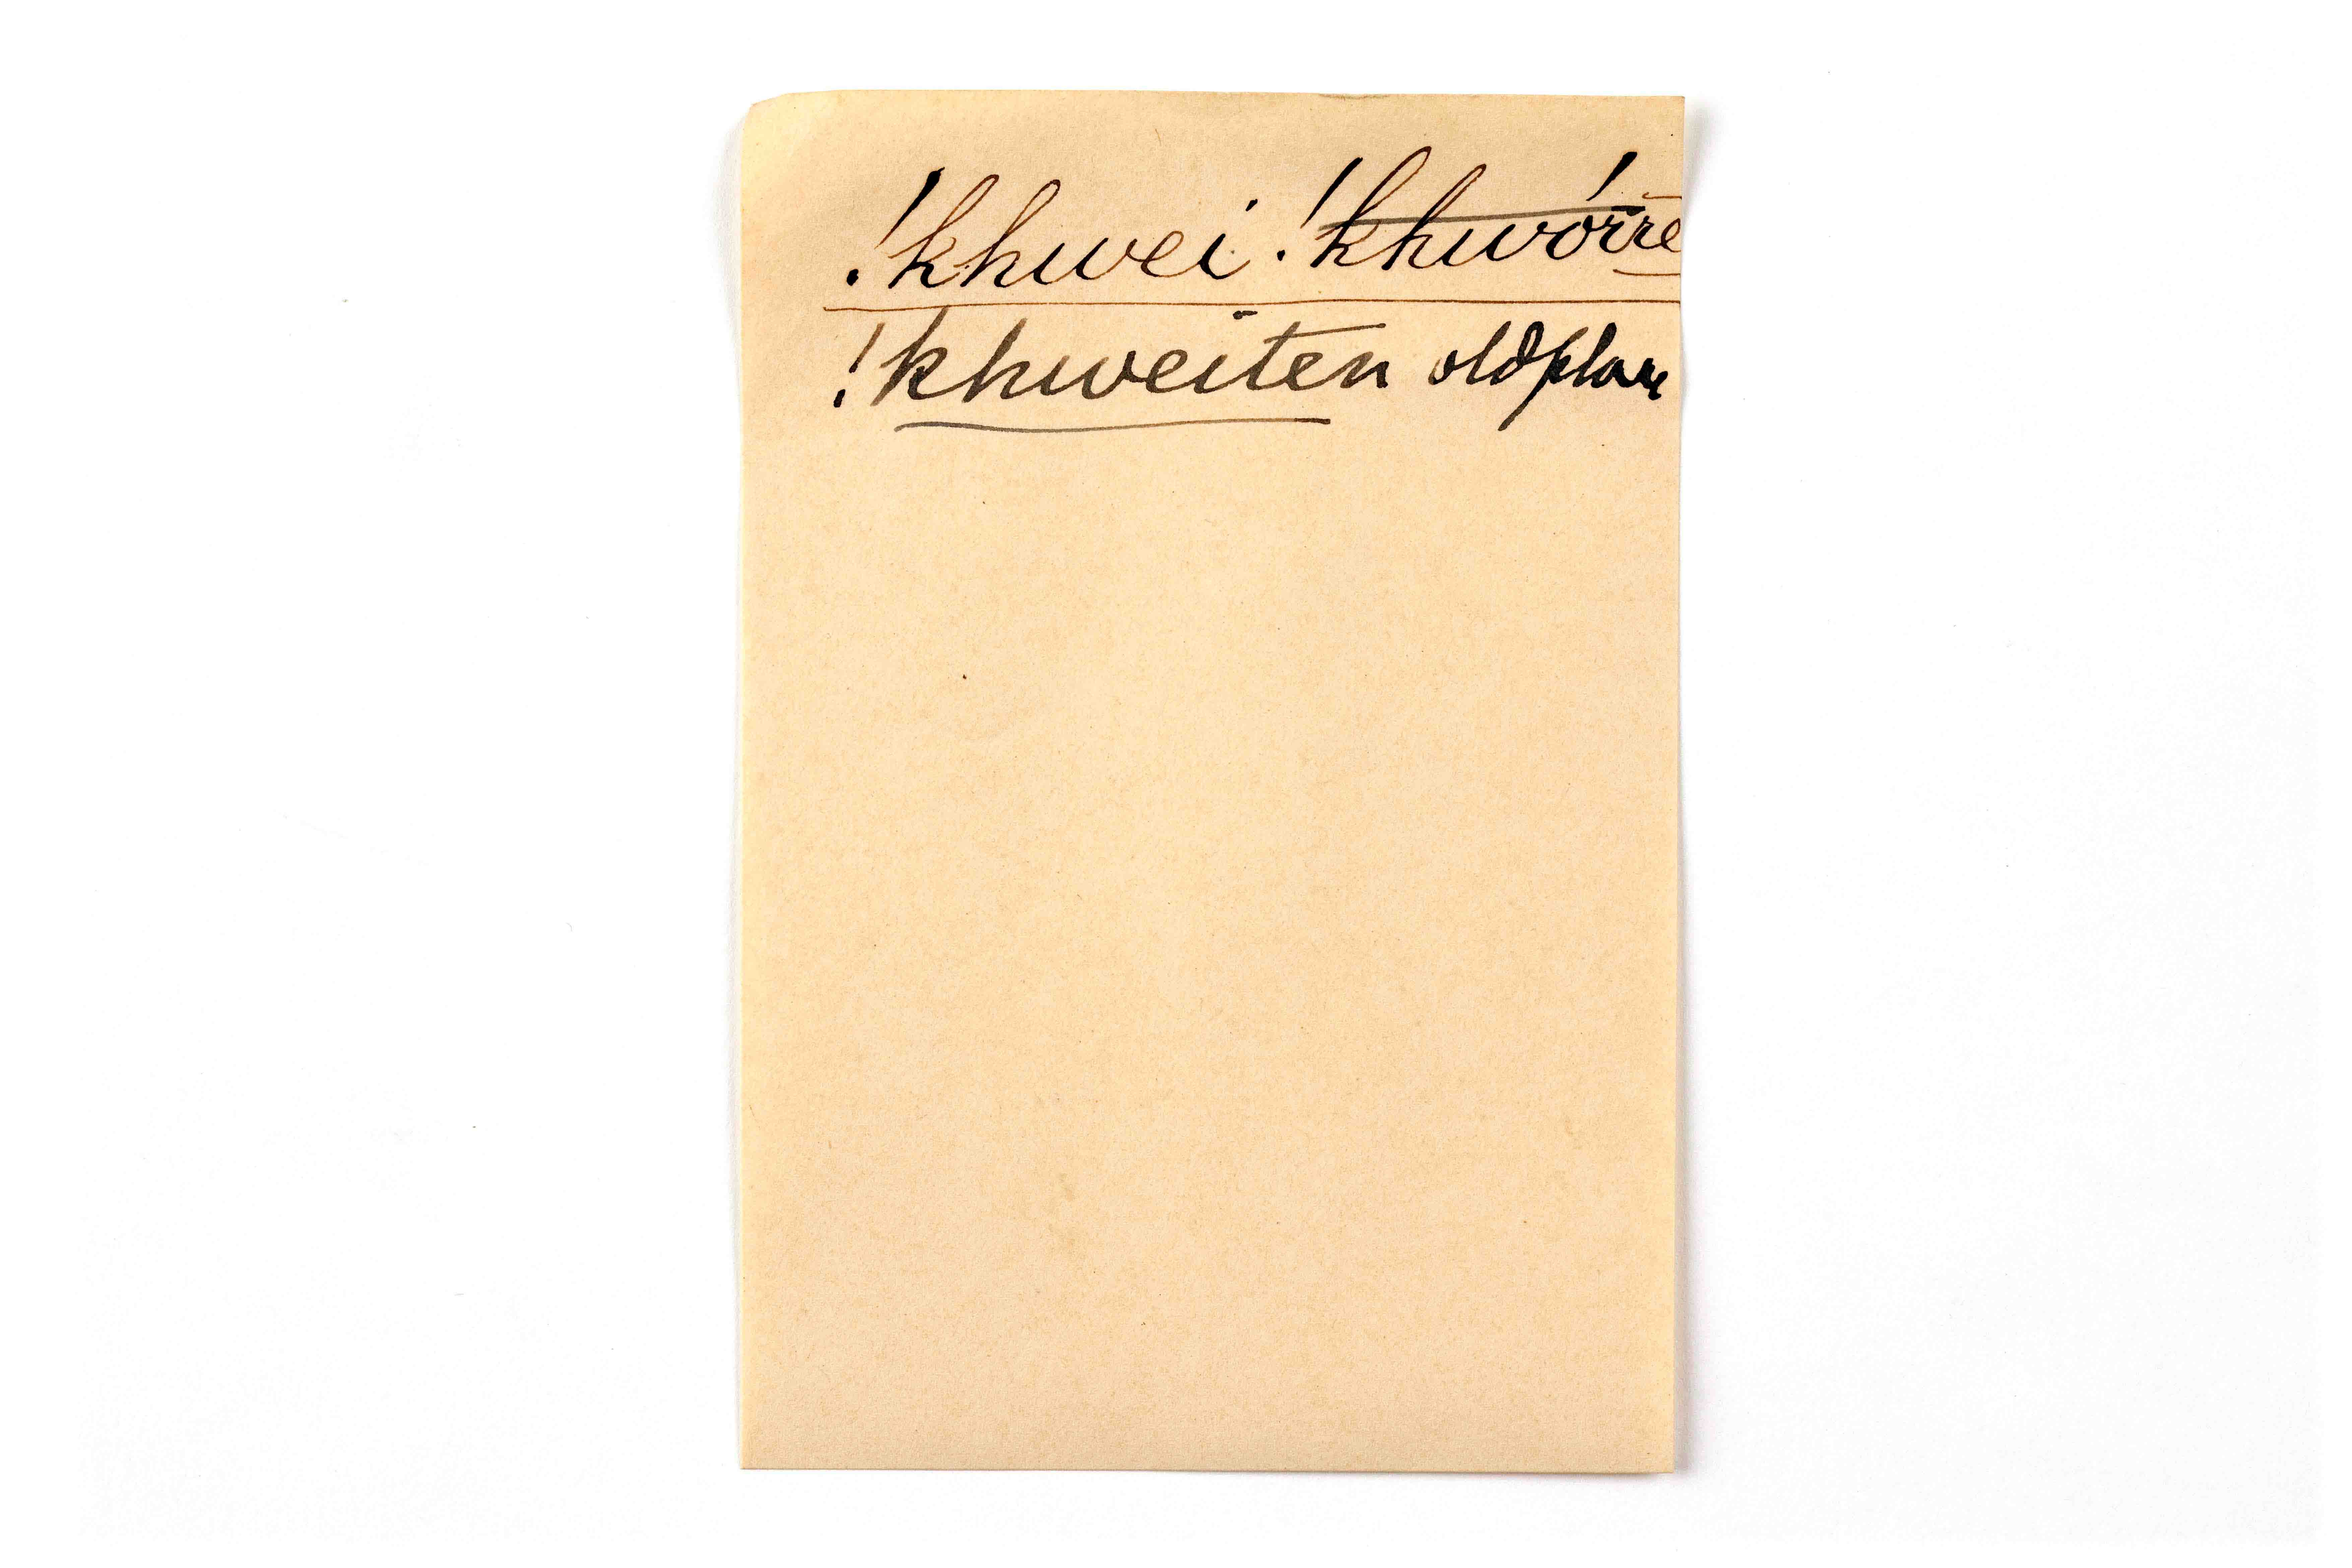 !khwei !khwórre
!khweiten old place